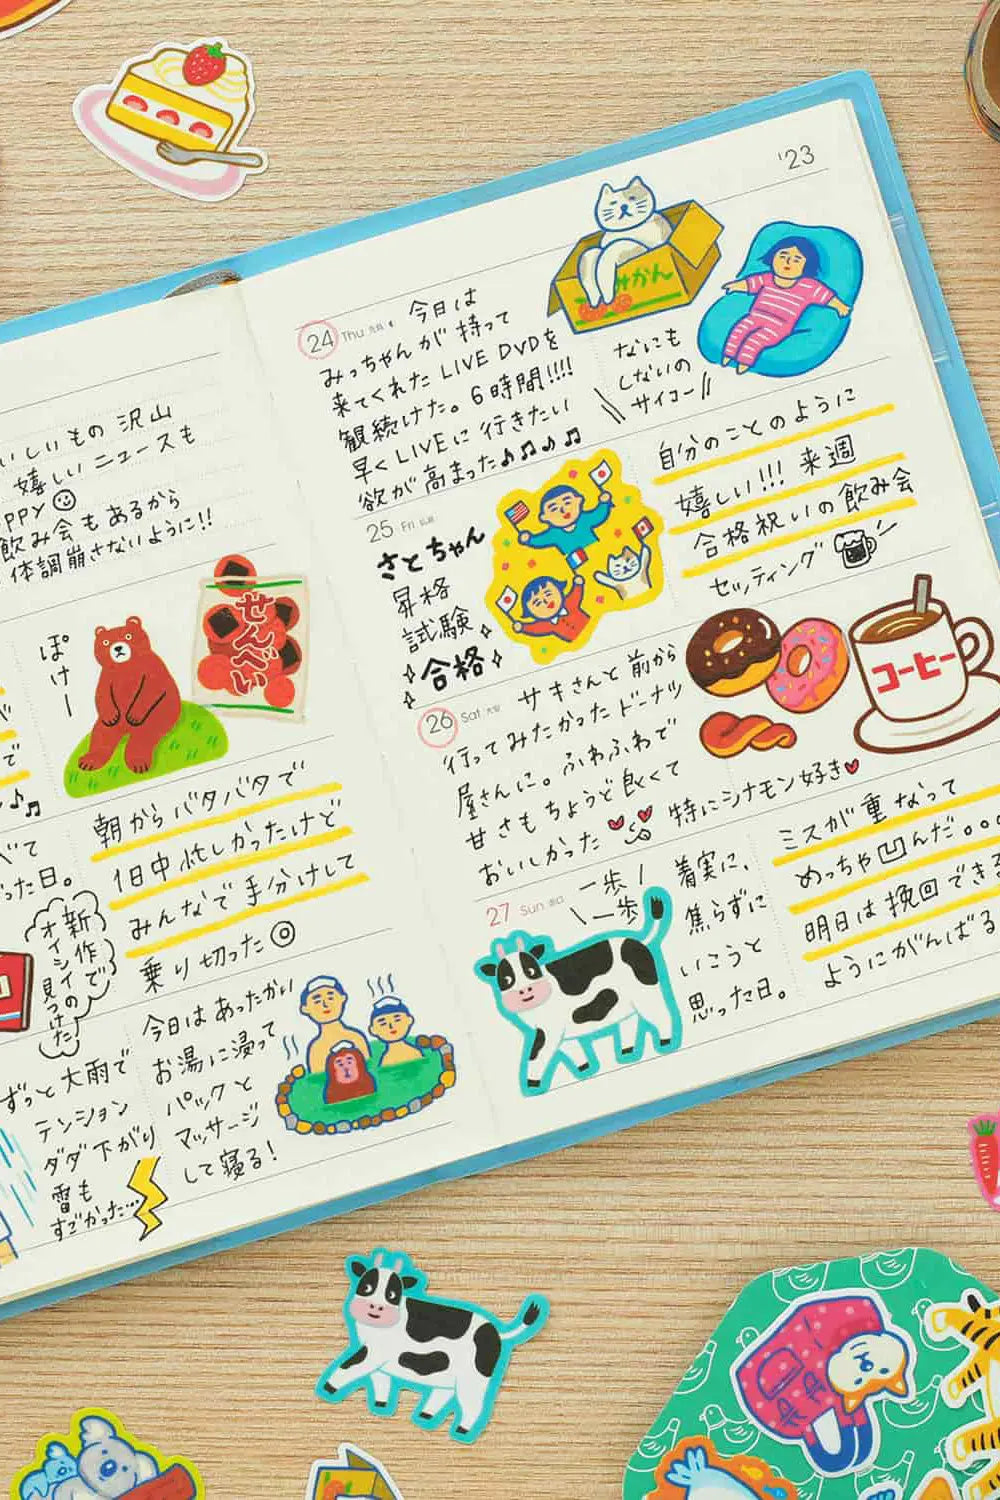 いしいもの 沢山
嬉しい ニュースも
PPY
飲み会もあるから
体調崩さないように!!
ぽけーー
せんべい
で
朝から バタバタで
1日中 忙しかったけど
みんなで 手分けして
乗り切った
べて
った日。
新作で
オイシイの
見つけた!
ずっと大雨で
テンション
ダダ下がり
雷も
すごかった…
今日はあったかい
お湯に浸って
パックと
マッサージ
して寝る!
'23
24 Thu
今日は
みっちゃんが持って
来てくれたLIVE DVDを
観続けた。6時間!!!!
早くLIVEに行きたい
欲が高まった♪♫♪♫
みかん
なにも
しないの
サイコー//
25 Fri
さとちゃん
昇格
試験
合格
自分のことのように
嬉しい!!! 来週
合格祝いの飲み会
セッティング
26 Sat
サキさんと前から
行ってみたかったドーナツ
屋さんに。ふわふわで
甘さもちょうど良くて
おいしかった
特にシナモン好き
コーヒー
27 Sun
一歩
一歩
着実に、
焦らずに
いこうと
思った日。
ミスが重なって
めっちゃ凹んだ。。。
明日は挽回できる
ようにがんばる